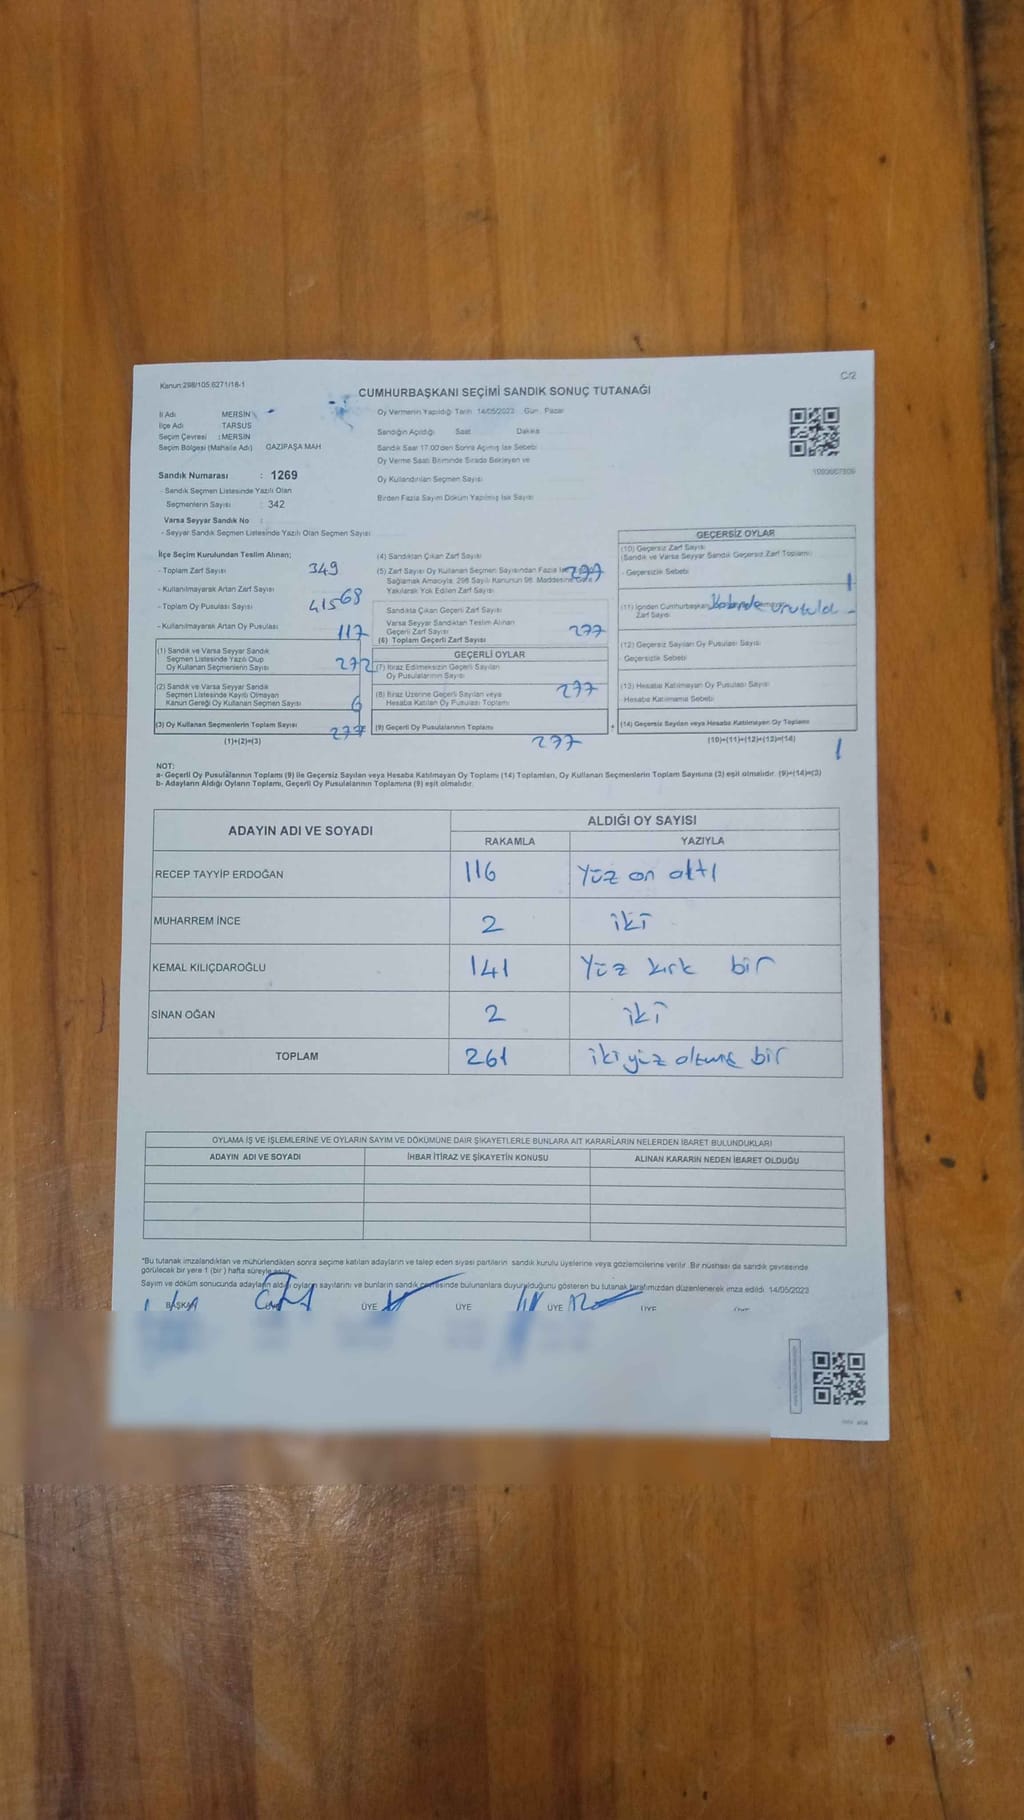 Kanun:298/105,6271/16-1
C/2
CUMHURBAŞKANI SEÇİMİ SANDIK SONUÇ TUTANAĞI
İl Adı MERSİN
İlçe Adı TARSUS
Seçim Çevresi : MERSİN
Seçim Bölgesi (Mahalle Adı) GAZİPAŞA MAH
Sandık Numarası : 1269
- Sandık Seçmen Listesinde Yazılı Olan
Seçmenlerin Sayısı : 342
Varsa Seyyar Sandık No :
- Seyyar Sandık Seçmen Listesinde Yazılı Olan Seçmen Sayısı
Oy Vermenin Yapıldığı Tarih : 14/05/2023 Gün : Pazar
Sandığın Açıldığı Saat Dakika
Sandık Saat 17:00'den Sonra Açılmış İse Sebebi
Oy Verme Saati Bitiminde Sırada Bekleyen ve
Oy Kullandırılan Seçmen Sayısı
Birden Fazla Sayım Döküm Yapılmış İse Sayısı
İlçe Seçim Kurulundan Teslim Alınan;
- Toplam Zarf Sayısı 349
- Kullanılmayarak Artan Zarf Sayısı 68
- Toplam Oy Pusulası Sayısı 415
- Kullanılmayarak Artan Oy Pusulası 117
(1) Sandık ve Varsa Seyyar Sandık
Seçmen Listesinde Yazılı Olup
Oy Kullanan Seçmenlerin Sayısı 272
(2) Sandık ve Varsa Seyyar Sandık
Seçmen Listesinde Kayıtlı Olmayan
Kanun Gereği Oy Kullanan Seçmen Sayısı 6
(3) Oy Kullanan Seçmenlerin Toplam Sayısı
(1)+(2)=(3)
(4) Sandıktan Çıkan Zarf Sayısı
(5) Zarf Sayısı Oy Kullanan Seçmen Sayısından Fazla İse
Sağlamak Amacıyla, 298 Sayılı Kanunun 98. Maddesine Göre
Yakılarak Yok Edilen Zarf Sayısı
Sandıkta Çıkan Geçerli Zarf Sayısı
Varsa Seyyar Sandıktan Teslim Alınan
Geçerli Zarf Sayısı 277
(6) Toplam Geçerli Zarf Sayısı
GEÇERLİ OYLAR
(7) İtiraz Edilmeksizin Geçerli Sayılan
Oy Pusulalarının Sayısı
(8) İtiraz Üzerine Geçerli Sayılan veya
Hesaba Katılan Oy Pusulası Toplamı 277
(9) Geçerli Oy Pusulalarının Toplamı
277
GEÇERSİZ OYLAR
(10) Geçersiz Zarf Sayısı
(Sandık ve Varsa Seyyar Sandık Geçersiz Zarf Toplamı)
- Geçersizlik Sebebi 1
(11) İçinden Cumhurbaşkanı
Zarf Sayısı
(12) Geçersiz Sayılan Oy Pusulası Sayısı
Geçersizlik Sebebi
(13) Hesaba Katılmayan Oy Pusulası Sayısı
Hesaba Katılmama Sebebi
+ (14) Geçersiz Sayılan veya Hesaba Katılmayan Oy Toplamı
(10)+(11)+(12)+(13)=(14) 1
NOT:
a- Geçerli Oy Pusulalarının Toplamı (9) ile Geçersiz Sayılan veya Hesaba Katılmayan Oy Toplamı (14) Toplamları, Oy Kullanan Seçmenlerin Toplam Sayısına (3) eşit olmalıdır. (9)+(14)=(3)
b- Adayların Aldığı Oyların Toplamı, Geçerli Oy Pusulalarının Toplamına (9) eşit olmalıdır.
ADAYIN ADI VE SOYADI ALDIĞI OY SAYISI
RAKAMLA YAZIYLA
RECEP TAYYİP ERDOĞAN 116 Yüz on altı
MUHARREM İNCE 2 iki
KEMAL KILIÇDAROĞLU 141 Yüz kırk bir
SİNAN OĞAN 2 iki
TOPLAM 261 iki yüz altmış bir
OYLAMA İŞ VE İŞLEMLERİNE VE OYLARIN SAYIM VE DÖKÜMÜNE DAİR ŞİKAYETLERLE BUNLARA AİT KARARLARIN NELERDEN İBARET BULUNDUKLARI
ADAYIN ADI VE SOYADI İHBAR İTİRAZ VE ŞİKAYETİN KONUSU ALINAN KARARIN NEDEN İBARET OLDUĞU
*Bu tutanak imzalandıktan ve mühürlendikten sonra seçime katılan adayların ve talep eden siyasi partilerin sandık kurulu üyelerine veya gözlemcilerine verilir. Bir nüshası da sandık çevresinde
görülecek bir yere 1 (bir) hafta süreyle asılır.
Sayım ve döküm sonucunda adayların aldığı oyların sayılarını ve bunların sandık çevresinde bulunanlara duyurulduğunu gösteren bu tutanak tarafımızdan düzenlenerek imza edildi. 14/05/2023
BAŞKAN ÜYE ÜYE ÜYE ÜYE ÜYE